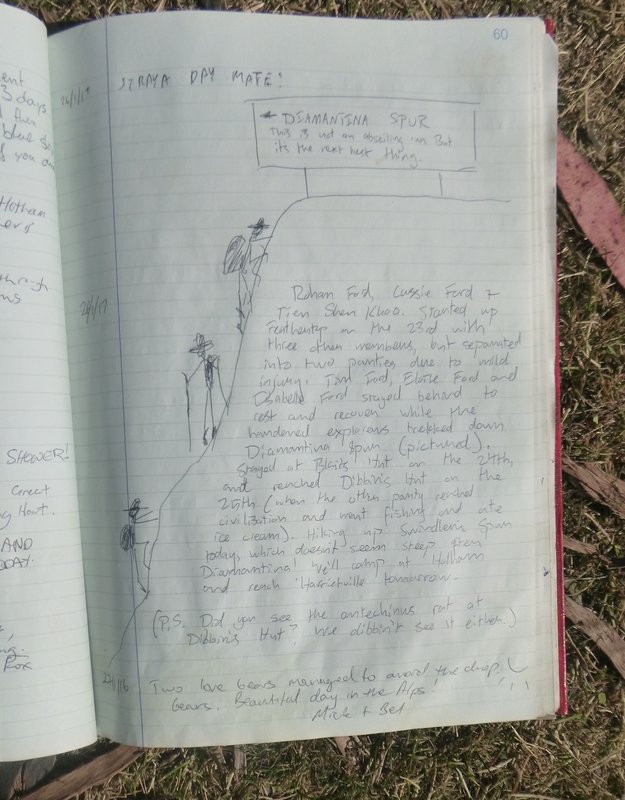 60
26/1/17 STRAYA DAY MATE!
← DIAMANTINA SPUR
This is not an abseiling run. But
its the next best thing.
26/1/17
Rohan Ford, Cassie Ford +
Tien Shen Khoo. Started up
Feathertop on the 23rd with
three other members, but separated
into two parties due to mild
injury. Tim Ford, Eloise Ford and
Isabelle Ford stayed behind to
rest and recover while the
hardened explorers trekked down
Diamantina Spur (pictured).
Stayed at Blairs Hut on the 24th,
and reached Dibbin's Hut on the
25th (when the other party reached
civilization and went fishing and ate
ice cream). Hiking up Swindlers Spur
today, which doesn't seem steep after
Diamantina! We'll camp at Hotham
and reach Harrietville tomorrow.
(P.S. Did you see the antechinus rat at
Dibbin's Hut? We dibbin't see it either.)
27/1/16 Two love bears managed to avoid the drop
bears. Beautiful day in the Alps!
+ Bel
ent
3 days
then
blue
if you
Hotham
SHOWER!
Correct
Hout.
AND
DAY.
Fox